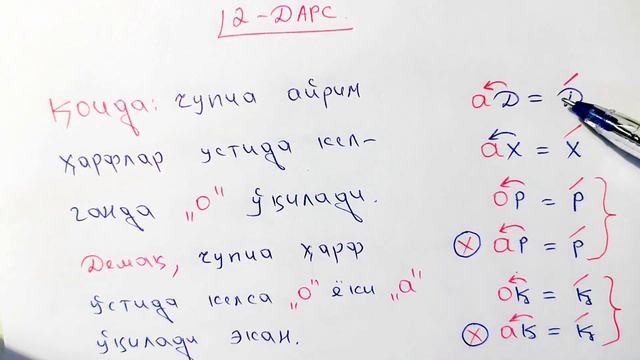 2-ДАРС.
Қоида: чупча айрим
ҳарфлар устида кел-
ганда „о" ўқилади.
Демак, чупча ҳарф
устида келса „о" ёки „а"
ўқилади экан.
аД = Д́
аХ = Х́
оР = Р́
аР = Р́
оҚ = Қ́
аҚ = Қ́